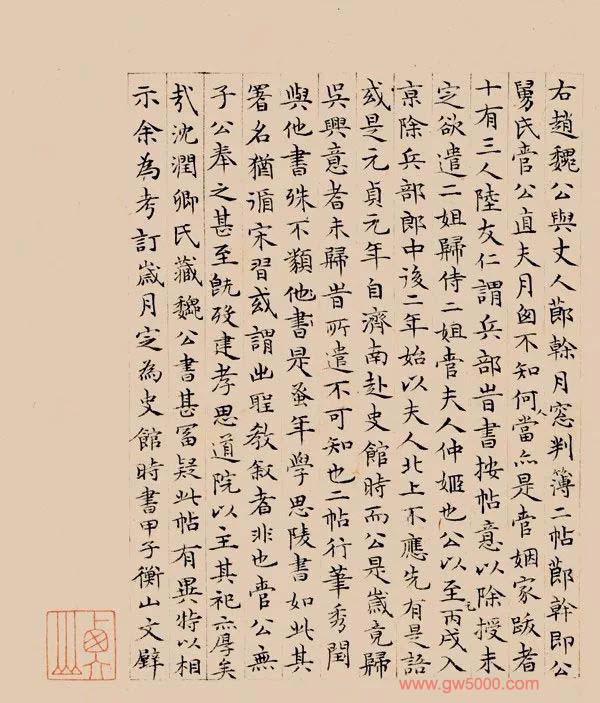 右趙魏公與丈人節幹月窓判簿二帖節幹即公
舅氏管公直夫月囪不知何人當亦是管姻家跋者
十有三人陸友仁謂兵部旹書按帖意以除授未
定欲遣二姐歸侍二姐管夫人仲姬也公以至元丙戌入
京除兵部郎中後二年始以夫人北上不應先有是語
或是元貞元年自濟南赴史館時而公是歲竟歸
吳興意者未歸旹所遣不可知也二帖行筆秀閏
與他書殊不類他書是蚤年學思陵書如此其
署名猶循宋習或謂出聖教敘者非也管公無
子公奉之甚至既歿建孝思道院以主其祀亦厚矣
哉沈潤卿氏藏魏公書甚冨疑此帖有異特以相
示余為考訂歲月定為史館時書甲子衡山文壁
www.gw5000.com